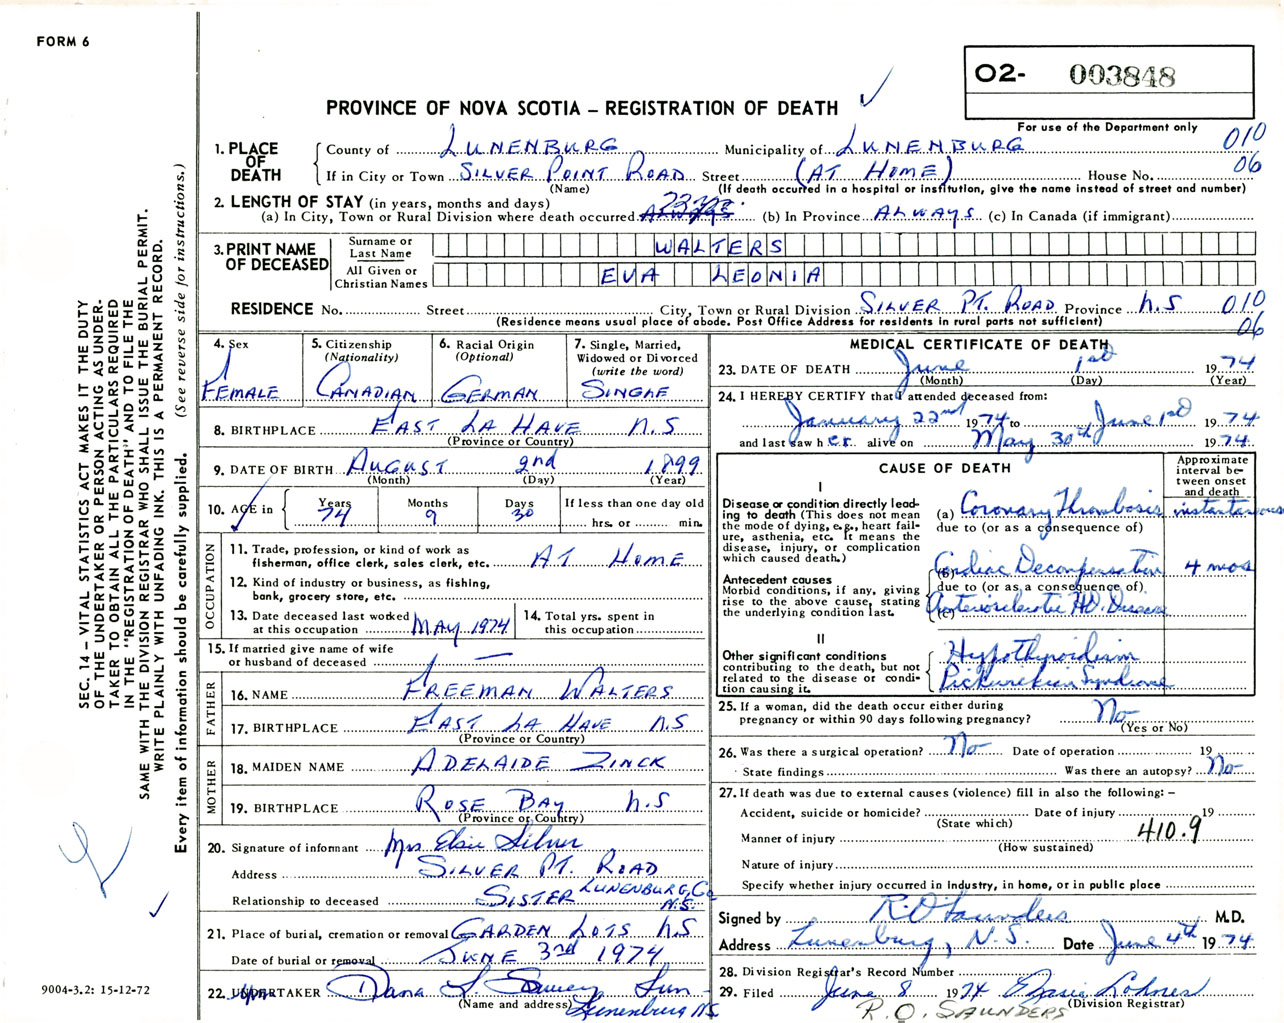 FORM 6
O2- 003848
PROVINCE OF NOVA SCOTIA – REGISTRATION OF DEATH
For use of the Department only
010
06
1. PLACE OF DEATH
County of LUNENBURG Municipality of LUNENBURG
If in City or Town SILVER POINT ROAD Street (AT HOME) House No.
(Name) (If death occurred in a hospital or institution, give the name instead of street and number)
2. LENGTH OF STAY (in years, months and days)
(a) In City, Town or Rural Division where death occurred (b) In Province ALWAYS (c) In Canada (if immigrant)
3. PRINT NAME OF DECEASED
Surname or Last Name WALTERS
All Given or Christian Names EVA LEONIA
RESIDENCE No. Street City, Town or Rural Division SILVER PT. ROAD Province N.S 010
(Residence means usual place of abode. Post Office Address for residents in rural parts not sufficient) 06
4. Sex
FEMALE
5. Citizenship
(Nationality)
CANADIAN
6. Racial Origin
(Optional)
GERMAN
7. Single, Married, Widowed or Divorced
(write the word)
SINGLE
8. BIRTHPLACE EAST LA HAVE N.S
(Province or Country)
9. DATE OF BIRTH AUGUST 2nd 1899
(Month) (Day) (Year)
10. AGE in
Years 74
Months 9
Days 30
If less than one day old
hrs. or min.
OCCUPATION
11. Trade, profession, or kind of work as
fisherman, office clerk, sales clerk, etc. AT HOME
12. Kind of industry or business, as fishing,
bank, grocery store, etc.
13. Date deceased last worked
at this occupation MAY 1974
14. Total yrs. spent in
this occupation
15. If married give name of wife
or husband of deceased —
FATHER
16. NAME FREEMAN WALTERS
17. BIRTHPLACE EAST LA HAVE N.S
(Province or Country)
MOTHER
18. MAIDEN NAME ADELAIDE ZINCK
19. BIRTHPLACE ROSE BAY N.S
(Province or Country)
20. Signature of informant Mrs Elsie Silver
Address SILVER PT. ROAD
LUNENBURG, Co
Relationship to deceased SISTER N.S.
21. Place of burial, cremation or removal GARDEN LOTS N.S
Date of burial or removal JUNE 3rd 1974
22. UNDERTAKER Dana L. Sweeny
(Name and address) Lunenburg N.S.
MEDICAL CERTIFICATE OF DEATH
23. DATE OF DEATH June 1st 1974
(Month) (Day) (Year)
24. I HEREBY CERTIFY that I attended deceased from:
January 22nd 1974 to June 1st 1974
and last saw her alive on May 30th 1974
CAUSE OF DEATH
Approximate interval between onset and death
I
Disease or condition directly leading to death (This does not mean the mode of dying, e.g., heart failure, asthenia, etc. It means the disease, injury, or complication which caused death.)
(a) Coronary Thrombosis instantaneous
due to (or as a consequence of)
Antecedent causes
Morbid conditions, if any, giving rise to the above cause, stating the underlying condition last.
(b) Cardiac Decompensation 4 mos
due to (or as a consequence of)
(c) Arteriosclerotic Ht. Disease
II
Other significant conditions
contributing to the death, but not related to the disease or condition causing it.
Hypothyroidism
Pickwickian Syndrome
25. If a woman, did the death occur either during
pregnancy or within 90 days following pregnancy? No
(Yes or No)
26. Was there a surgical operation? No Date of operation 19
State findings Was there an autopsy? No
27. If death was due to external causes (violence) fill in also the following: –
Accident, suicide or homicide? Date of injury 19
(State which)
Manner of injury 410.9
(How sustained)
Nature of injury
Specify whether injury occurred in Industry, in home, or in public place
Signed by R O Saunders M.D.
Address Lunenburg, N.S. Date June 4th 1974
28. Division Registrar's Record Number
29. Filed June 8 1974
(Division Registrar)
R. O. SAUNDERS
SEC. 14 – VITAL STATISTICS ACT MAKES IT THE DUTY
OF THE UNDERTAKER OR PERSON ACTING AS UNDER-
TAKER TO OBTAIN ALL THE PARTICULARS REQUIRED
IN THE "REGISTRATION OF DEATH" AND TO FILE THE
SAME WITH THE DIVISION REGISTRAR WHO SHALL ISSUE THE BURIAL PERMIT.
WRITE PLAINLY WITH UNFADING INK. THIS IS A PERMANENT RECORD.
Every item of information should be carefully supplied. (See reverse side for instructions.)
9004-3.2: 15-12-72